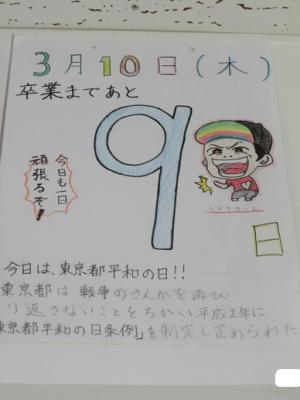 3月10日(木)
卒業まであと
9
日
今日も一日
頑張るぞ!
ミルクボーイ
今日は、東京都平和の日!!
東京都は、戦争のさんかを再び
り返さないことをちかい平成2年に
東京都平和の日条例」を制定し定められた